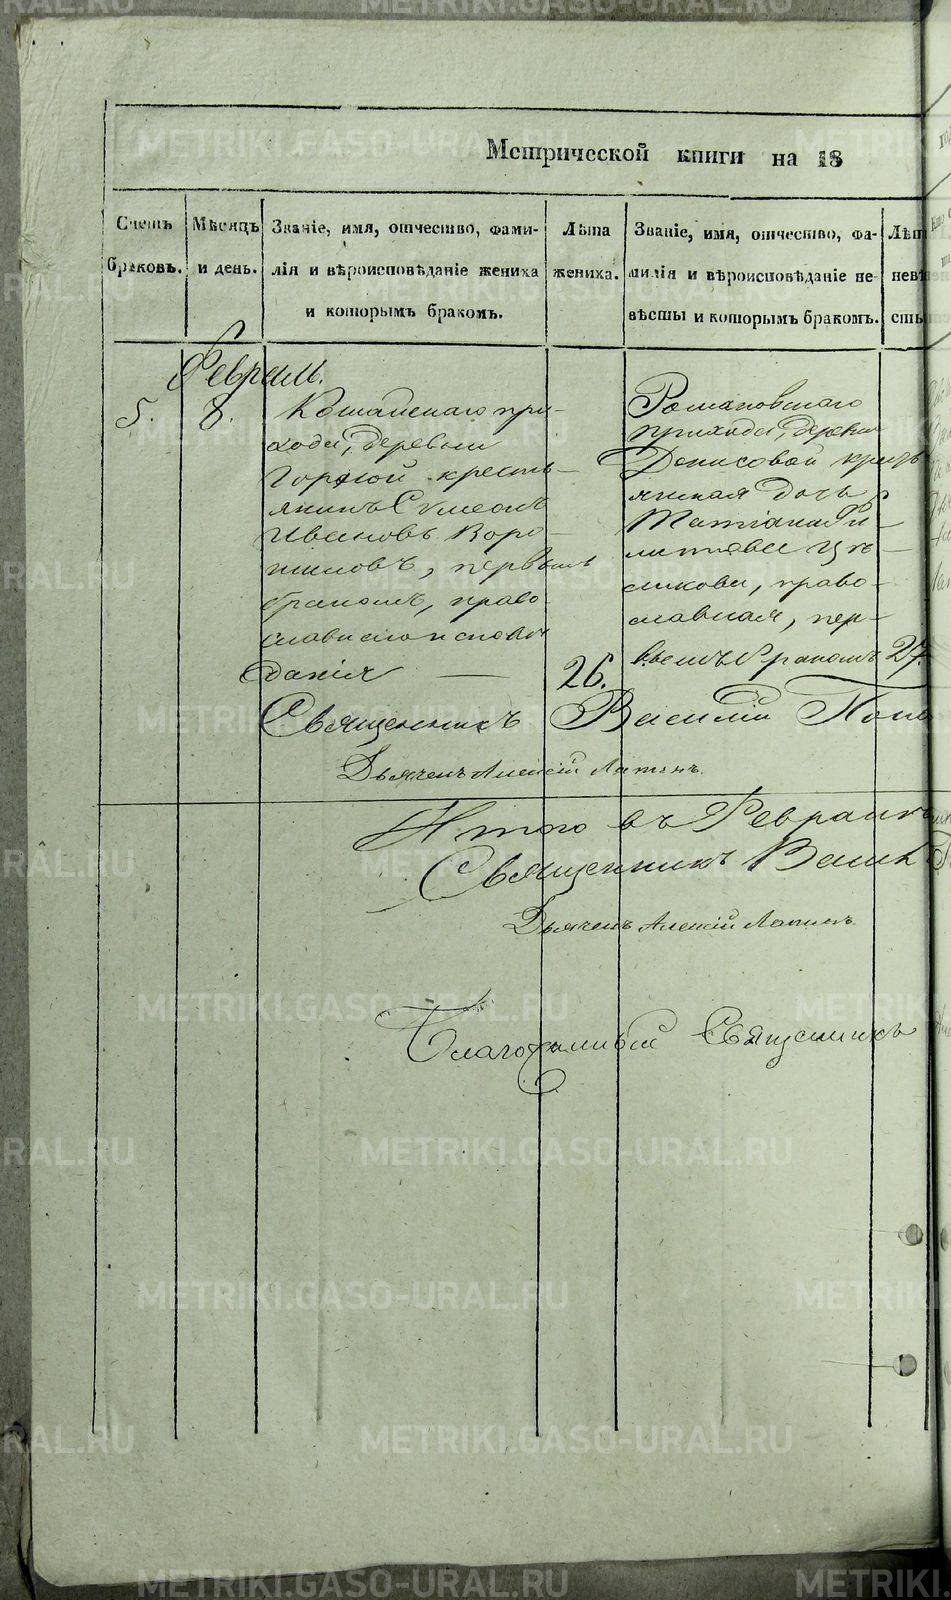 METRIKI.GASO-URAL.RU
Метрической книги на 18
Счетъ браковъ.
Мѣсяцъ и день.
Званіе, имя, отчество, фами-
лія и вѣроисповѣданіе жениха
и которымъ бракомъ.
Лѣта
жениха.
Званіе, имя, отчество, фа-
милія и вѣроисповѣданіе не-
вѣсты и которымъ бракомъ.
Лѣт
невѣ
сты
Февраль.
5.
8.
Кошайскаго при-
хода, деревни
крестья-
янинъ Симеонъ
Ивановъ Воро-
шиловъ, первымъ
бракомъ, право-
славнаго исповѣ
данія
26.
Романовскаго
прихода, деревни
Денисовой кресть
янская дочь
Татіана Фи-
липпова
право-
славная, пер-
вымъ бракомъ
27.
Священникъ Василій Попо
Дьячекъ Алексій Лапинъ.
Итого въ Февралѣ
Священникъ Васил
Дьячекъ Алексій Лапинъ
Благочинный Священникъ